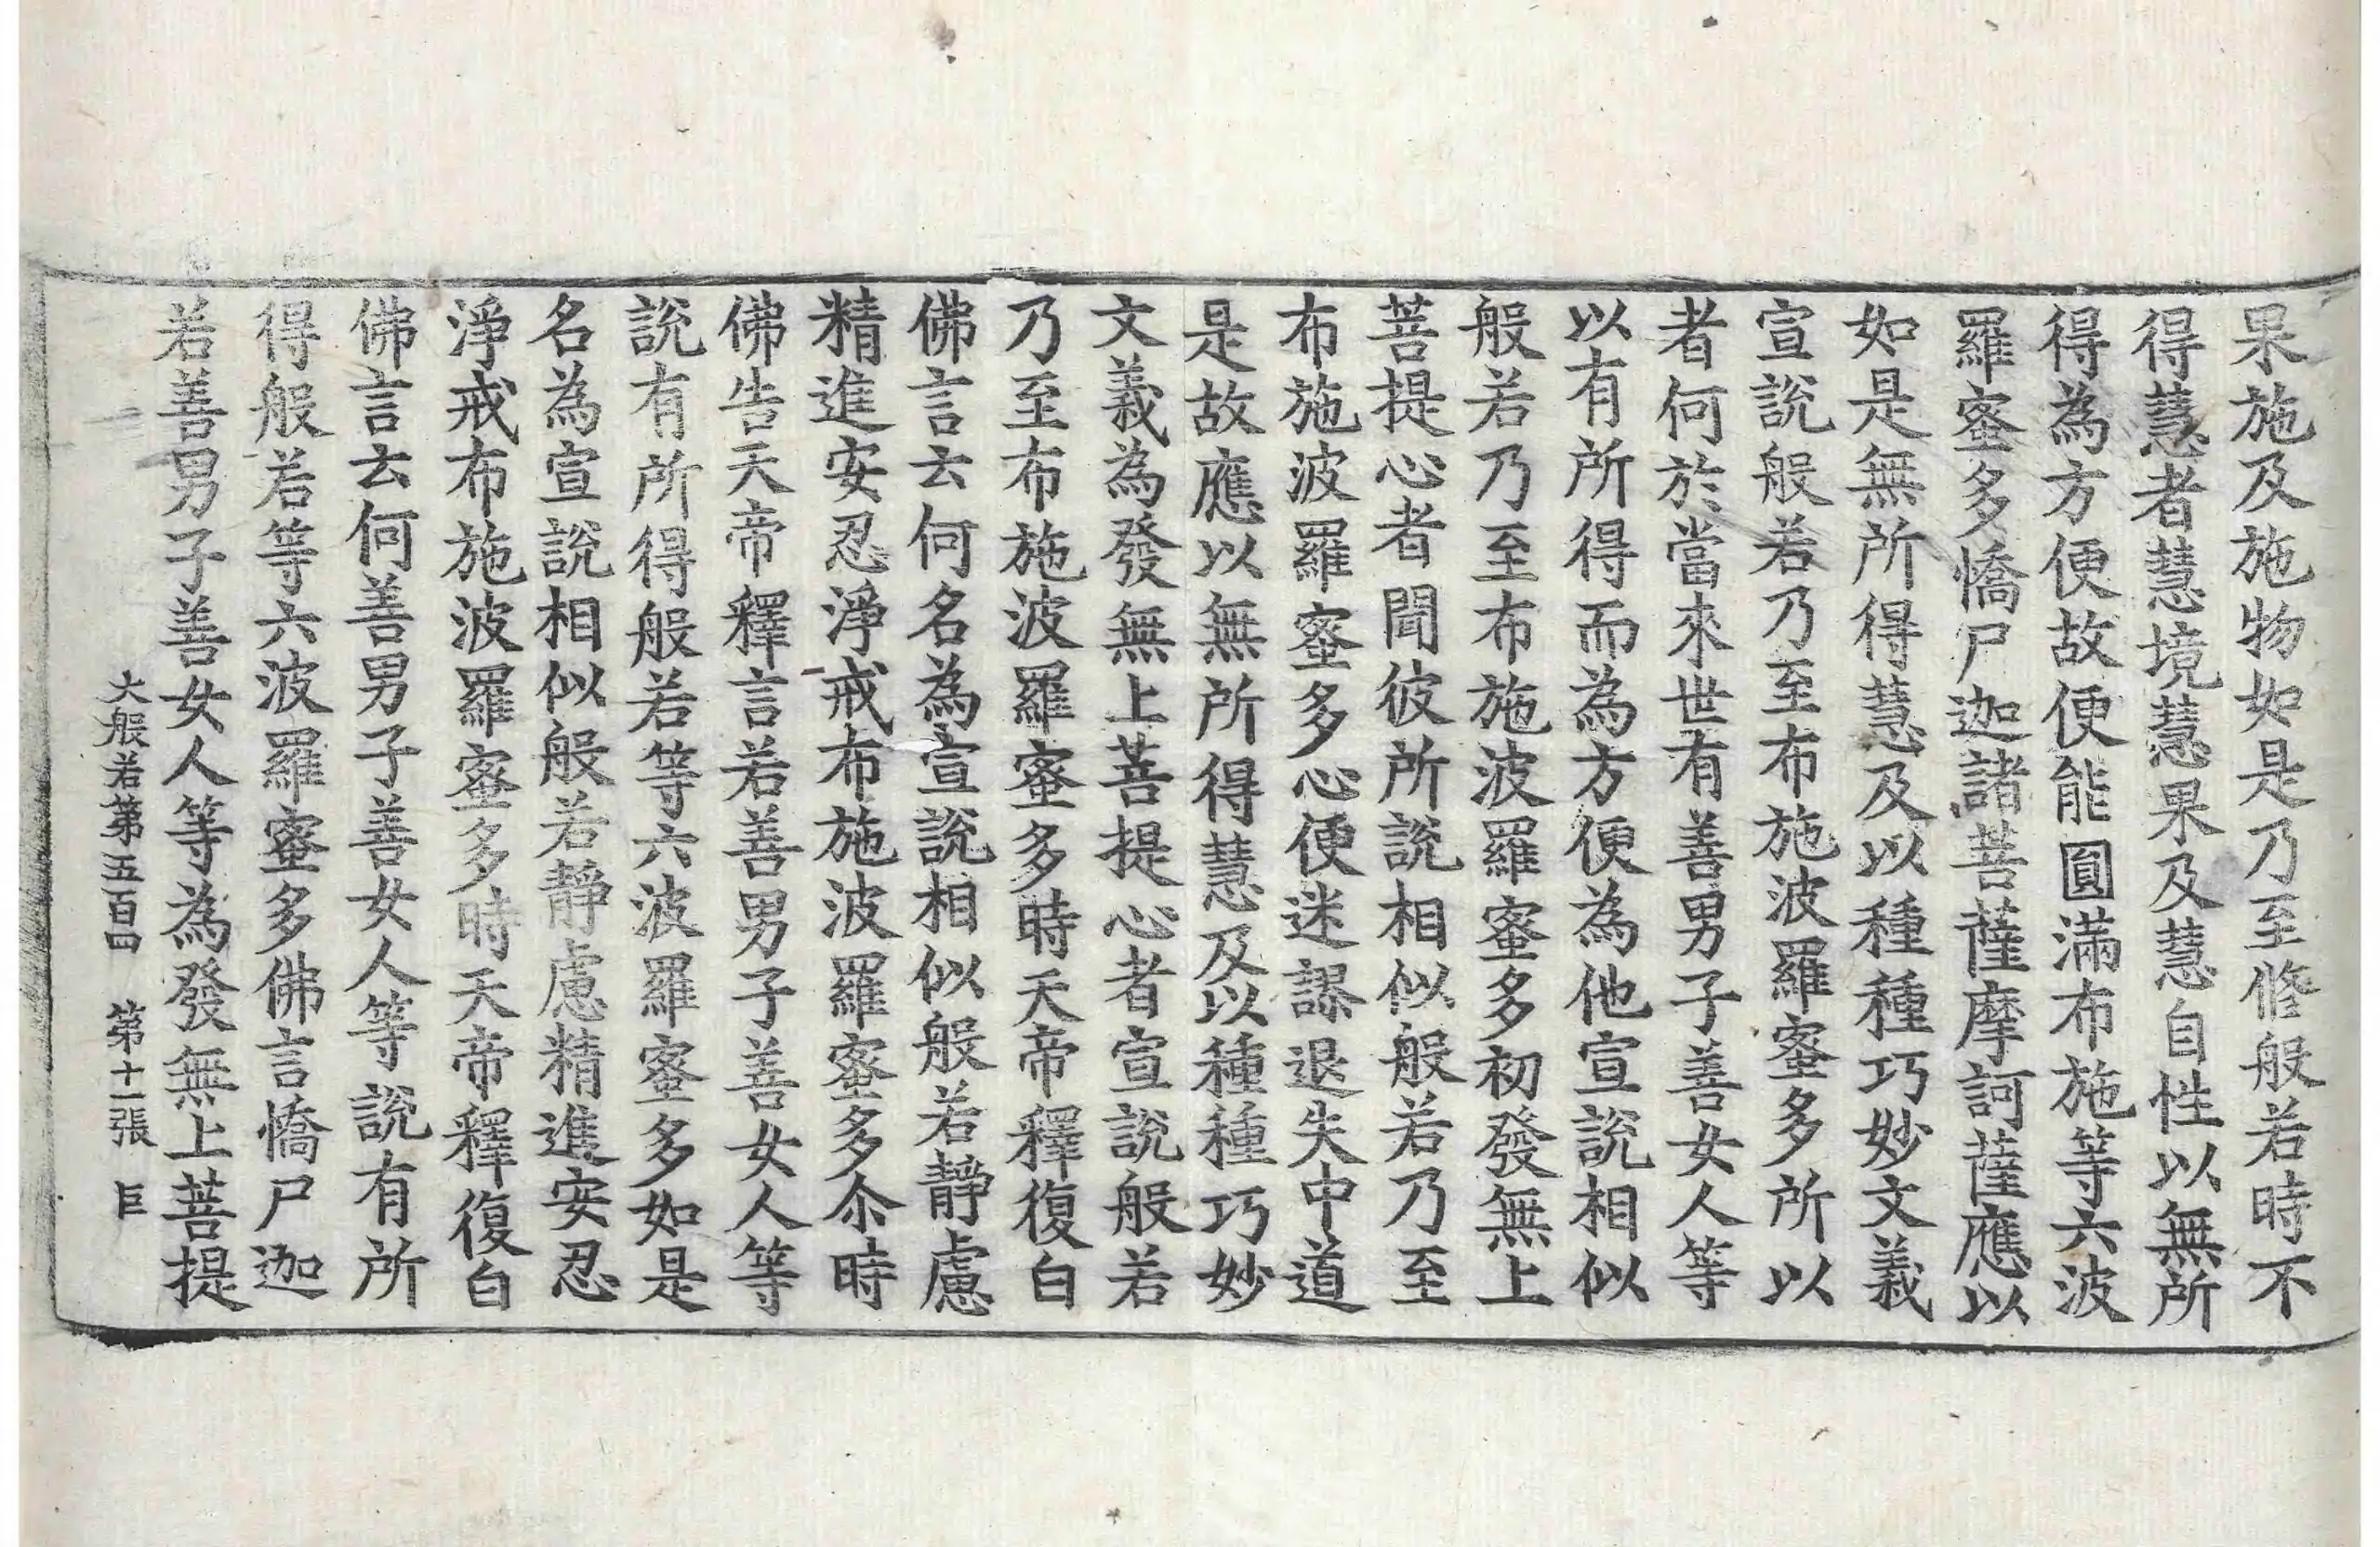 果施及施物如是乃至修般若時不
得慧者慧境慧果及慧自性以無所
得為方便故便能圓滿布施等六波
羅蜜多憍尸迦諸菩薩摩訶薩應以
如是無所得慧及以種種巧妙文義
宣說般若乃至布施波羅蜜多所以
者何於當來世有善男子善女人等
以有所得而為方便為他宣說相似
般若乃至布施波羅蜜多初發無上
菩提心者聞彼所說相似般若乃至
布施波羅蜜多心便迷謬退失中道
是故應以無所得慧及以種種巧妙
文義為發無上菩提心者宣說般若
乃至布施波羅蜜多時天帝釋復白
佛言云何名為宣說相似般若靜慮
精進安忍淨戒布施波羅蜜多尒時
佛告天帝釋言若善男子善女人等
說有所得般若等六波羅蜜多如是
名為宣說相似般若靜慮精進安忍
淨戒布施波羅蜜多時天帝釋復白
佛言云何善男子善女人等說有所
得般若等六波羅蜜多佛言憍尸迦
若善男子善女人等為發無上菩提
大般若第五百四 第十一張 巨